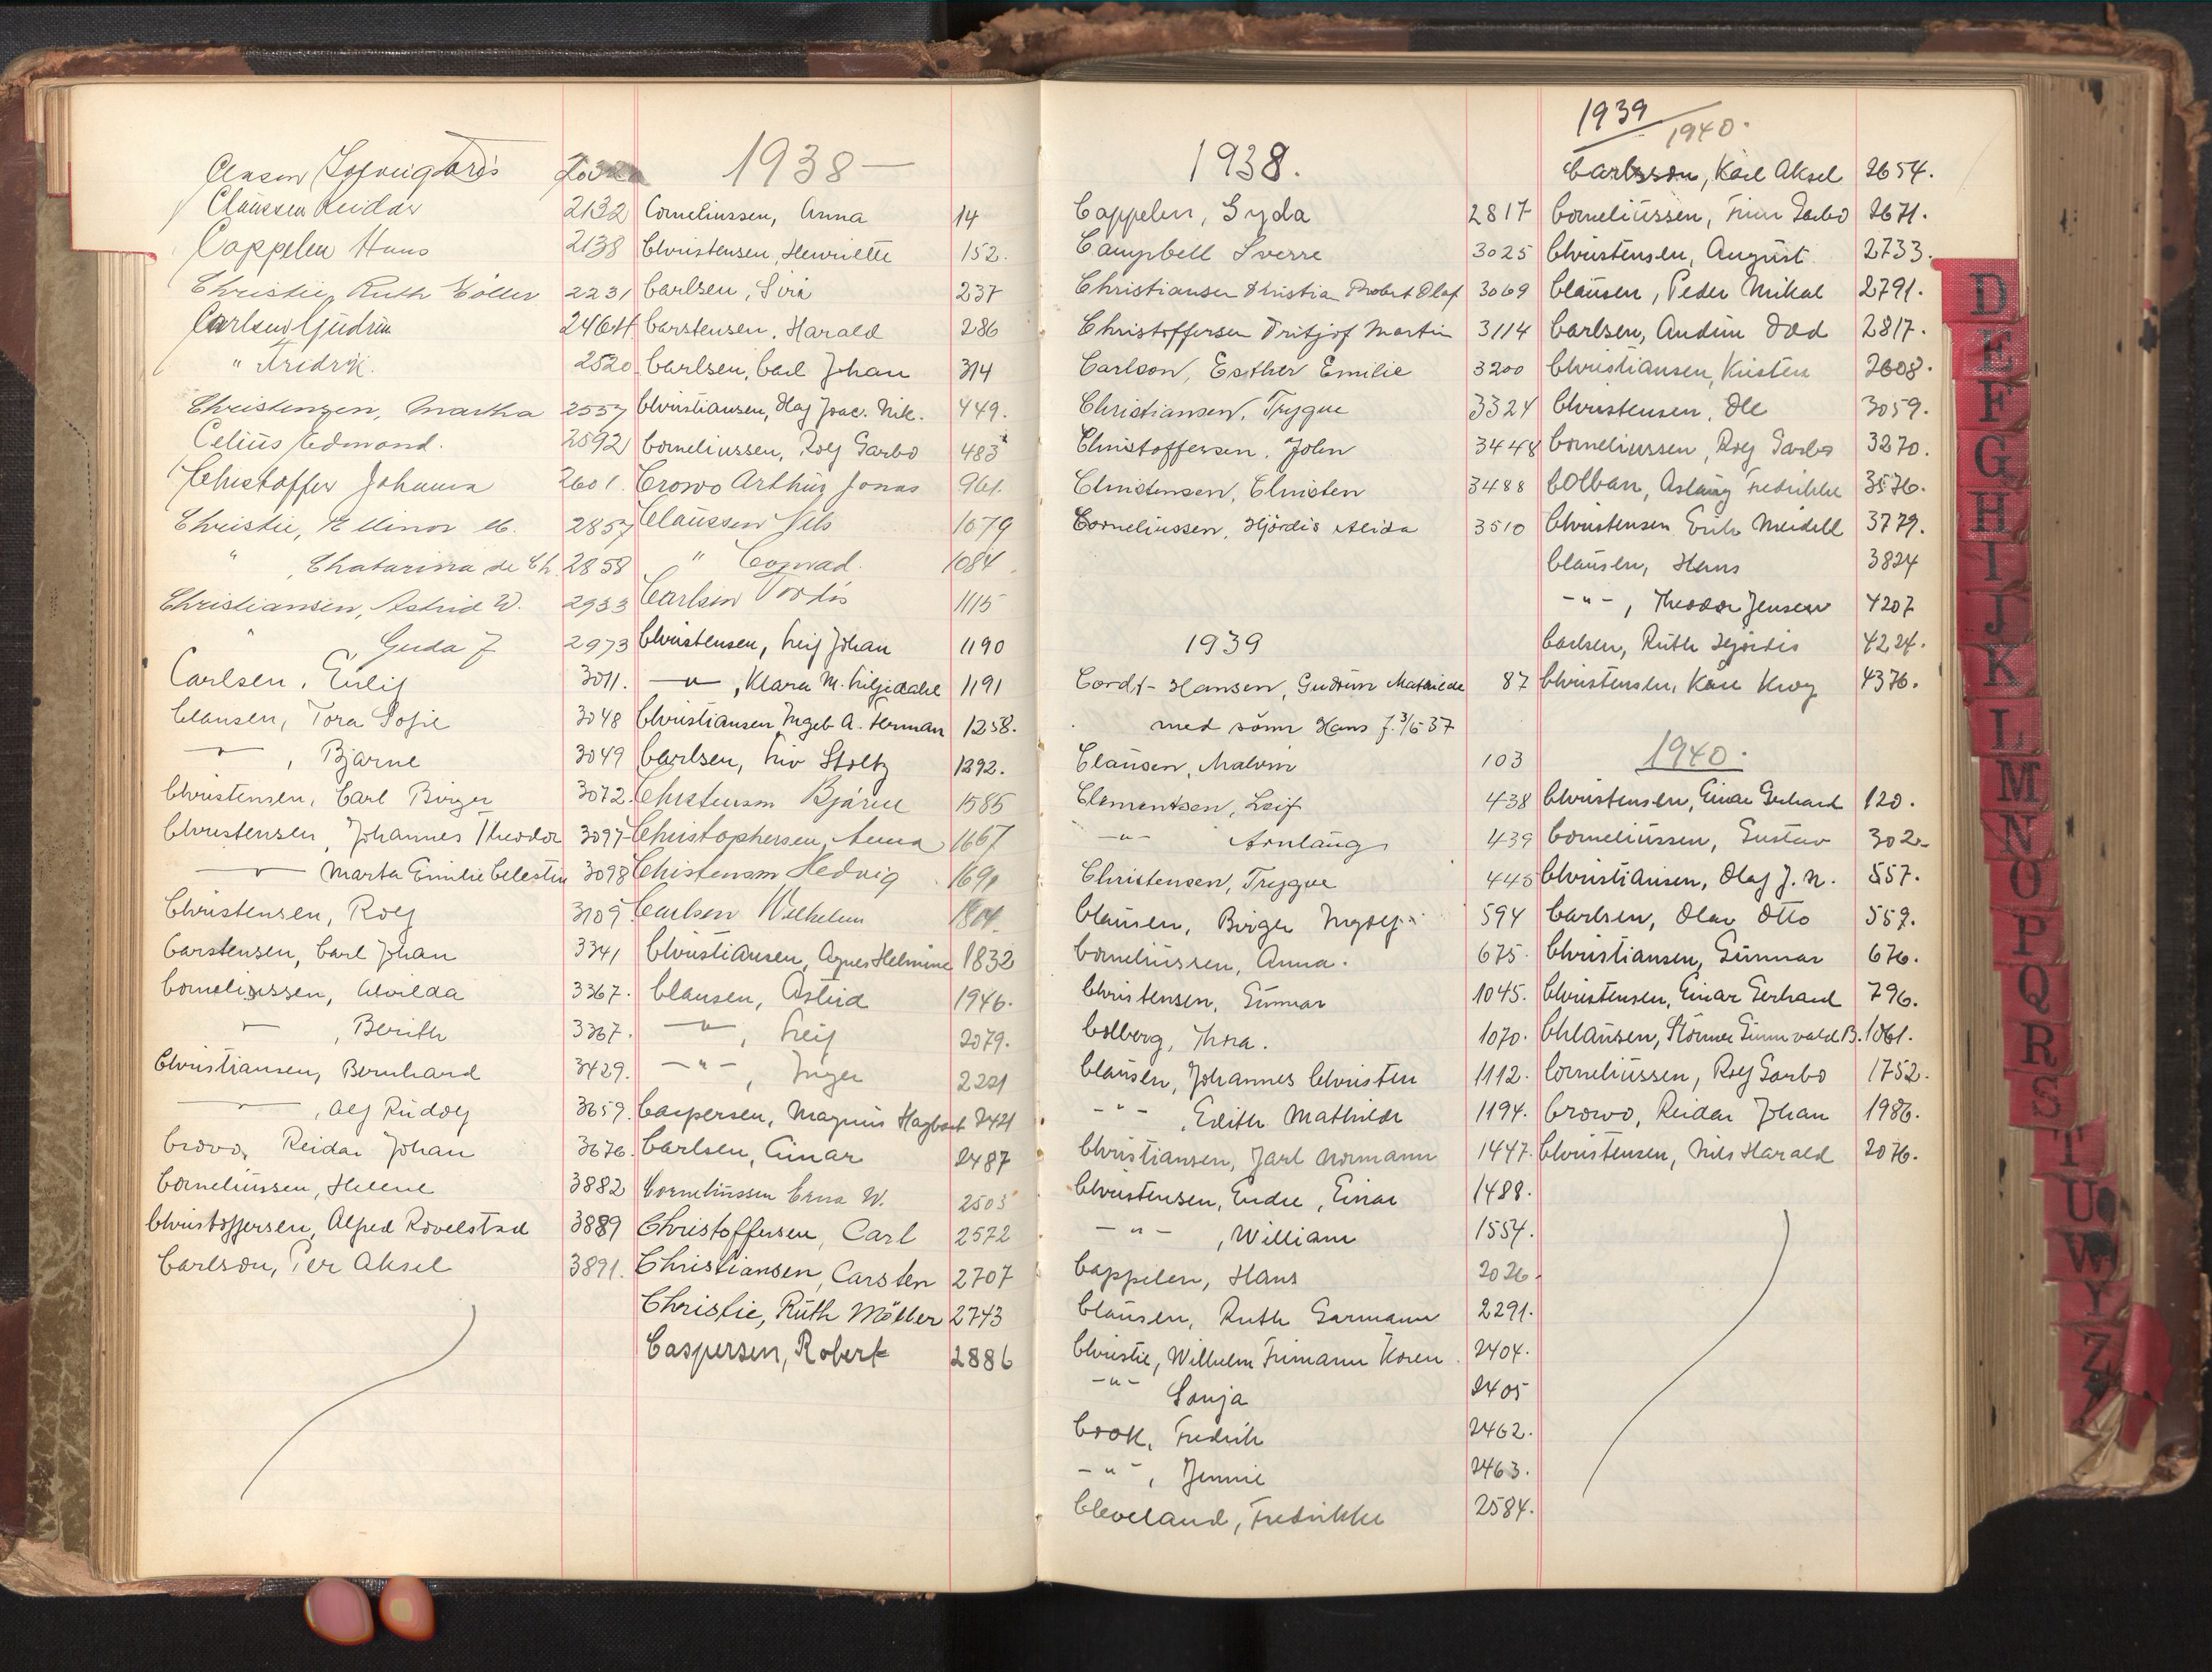 Clausen Reidar 2132
Cappelen Hans 2138
Christie, Ruth Möller 2231
Carlsen Gudrun 2464
" Fridrik. 2520
Christensen, Martha 2557
Celius Edmond. 2592
Christoffer Johanna 2601.
Christie, Ellinor M. 2857
" , Chatarina de Ch. 2858
Christiansen, Astrid W. 2933
" , Gerda J 2973
Carlsen, Eilif 3011.
Clausen, Tora Sofie 3048
—"— , Bjarne 3049
Christensen, Carl Birger 3072.
Christensen, Johannes Theodor 3097
—"— Marta Emilie Celestin 3098
Christensen, Rolf 3109
Carstensen, Carl Johan 3341
Corneliussen, Alvilda 3367.
—"— , Berith 3367.
Christiansen, Bernhard 3429.
—"— , Alf Rudolf 3659.
Crowo, Reidar Johan 3676.
Corneliussen, Helene 3882
Christoffersen, Alfred Rövelstad 3889
Carlson, Per Aksel 3891.
1938 —
Corneliussen, Anna 14
Christensen, Henriette 152.
Carlsen, Siri 237
Carstensen, Harald 286
Carlsen, Carl Johan 314
Christiansen, Olaf Isac. Nik. 449.
Corneliussen, Rolf Garbo 483
Crowo Arthur Jonas 961.
Claussen Nils 1079
" Conrad. 1084
Carlsen Tordis 1115
Christensen, Leif Johan 1190
—"— , Klara M. Liljedahl 1191
Christiansen Ingeb. A. Herman 1258.
Carlsen, Liv Stoltz 1392.
Christensen Bjarne 1585
Christophersen, Anna 1667
Christensen Hedvig 1691
Carlsen Wilhelm 1814.
Christiansen, Agnes Helmine 1832
Clausen, Astrid 1946.
—"— , Leif 2079.
—"— , Inger 2221
Caspersen, Magnus Hagbart 2421
Carlsen, Einar 2487
Corneliussen Erna W. 2505
Christoffersen, Carl 2572
Christiansen, Carsten 2707
Christie, Ruth Möller 2743
Caspersen, Robert 2886
1938.
Cappelen, Gyda 2817
Campbell Sverre 3025
Christiansen Kristian Probert Olaf 3069
Christoffersen Fritjof Martin 3114
Carlson, Esther Emilie 3200
Christiansen, Trygve 3324
Christoffersen, John 3448
Christensen, Christen 3488
Corneliussen, Hjördis Alida 3510
1939
Cordt-Hansen, Gudrun Mathilde 87
med sönn Hans f. 3/6 37
Clausen, Malvin 103
Clementsen, Leif 438
—"— Arnlaug 439
Christensen, Trygve 445
Clausen, Birger Ingolf 594
Corneliussen, Anna. 675.
Christensen, Gunnar 1045.
Colberg, Thora. 1070.
Clausen, Johannes Christen 1112.
—"— , Edith Mathilde 1194.
Christiansen, Jarl Normann 1447.
Christensen, Endre, Einar 1488.
—"— , William 1554.
Cappelen, Hans 2026.
Clausen, Ruth Garmann 2291.
Christie, Wilhelm Frimann Koren. 2404.
—"— Sonja 2405
Cook, Fredrik 2462.
—"— , Jennie 2463.
Cleveland, Fredrikke 2584.
1939 / 1940.
Carlsson, Karl Aksel 2654.
Corneliussen, Finn Garbo 2671.
Christensen, August 2733.
Clausen, Peder Mikal 2791.
Carlsen, Audun Odd 2817.
Christiansen, Kristen 2808.
Christensen, Ole 3059.
Corneliussen, Rolf Garbo 3270.
Colban, Aslaug Fredrikke 3576.
Christensen Erik Meidell 3779.
Clausen, Hans 3824
—"— , Theodor Jensen 4207
Carlsen, Ruth Hjördis 4224.
Christensen, Kåre Krog 4376.
1940.
Christensen, Einar Gerhard 120.
Corneliussen, Gustav 302.
Christiansen, Olaf J. N. 557.
Carlsen, Olav Otto 559.
Christiansen, Gunnar 676.
Christensen, Einar Gerhard 796.
Chlausen, Störmer Gunnvald B. 1061.
Corneliussen, Rolf Garbo 1752.
Crowo, Reidar Johan 1986.
Christensen, Nils Harald 2076.
D
E
F
G
H
I
J
K
L
M
N
O
P
Q
R
S
T
U
W
Y
Z